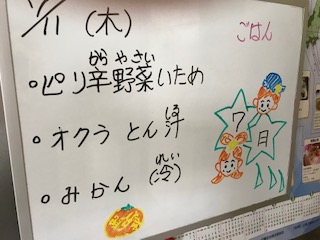 /11 (木)
ごはん
から やさい
・ピリ辛野菜いため
じる
・オクラ とん汁
れい
・みかん (冷)
7
日